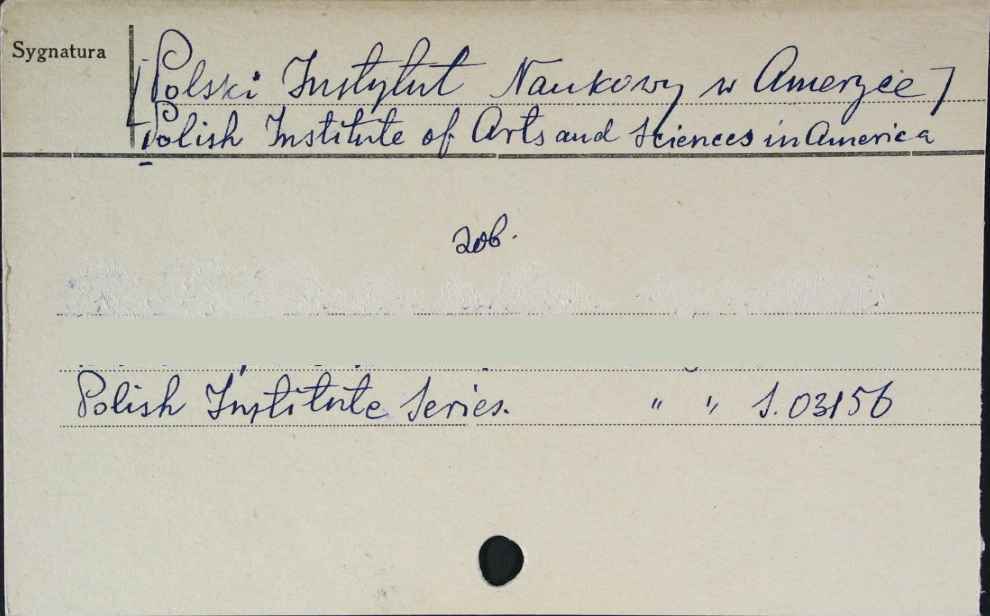 Sygnatura
[Polski Instytut Naukowy w Ameryce]
Polish Institute of Arts and Sciences in America
zob.
Polish Institute Series. " " S.03156